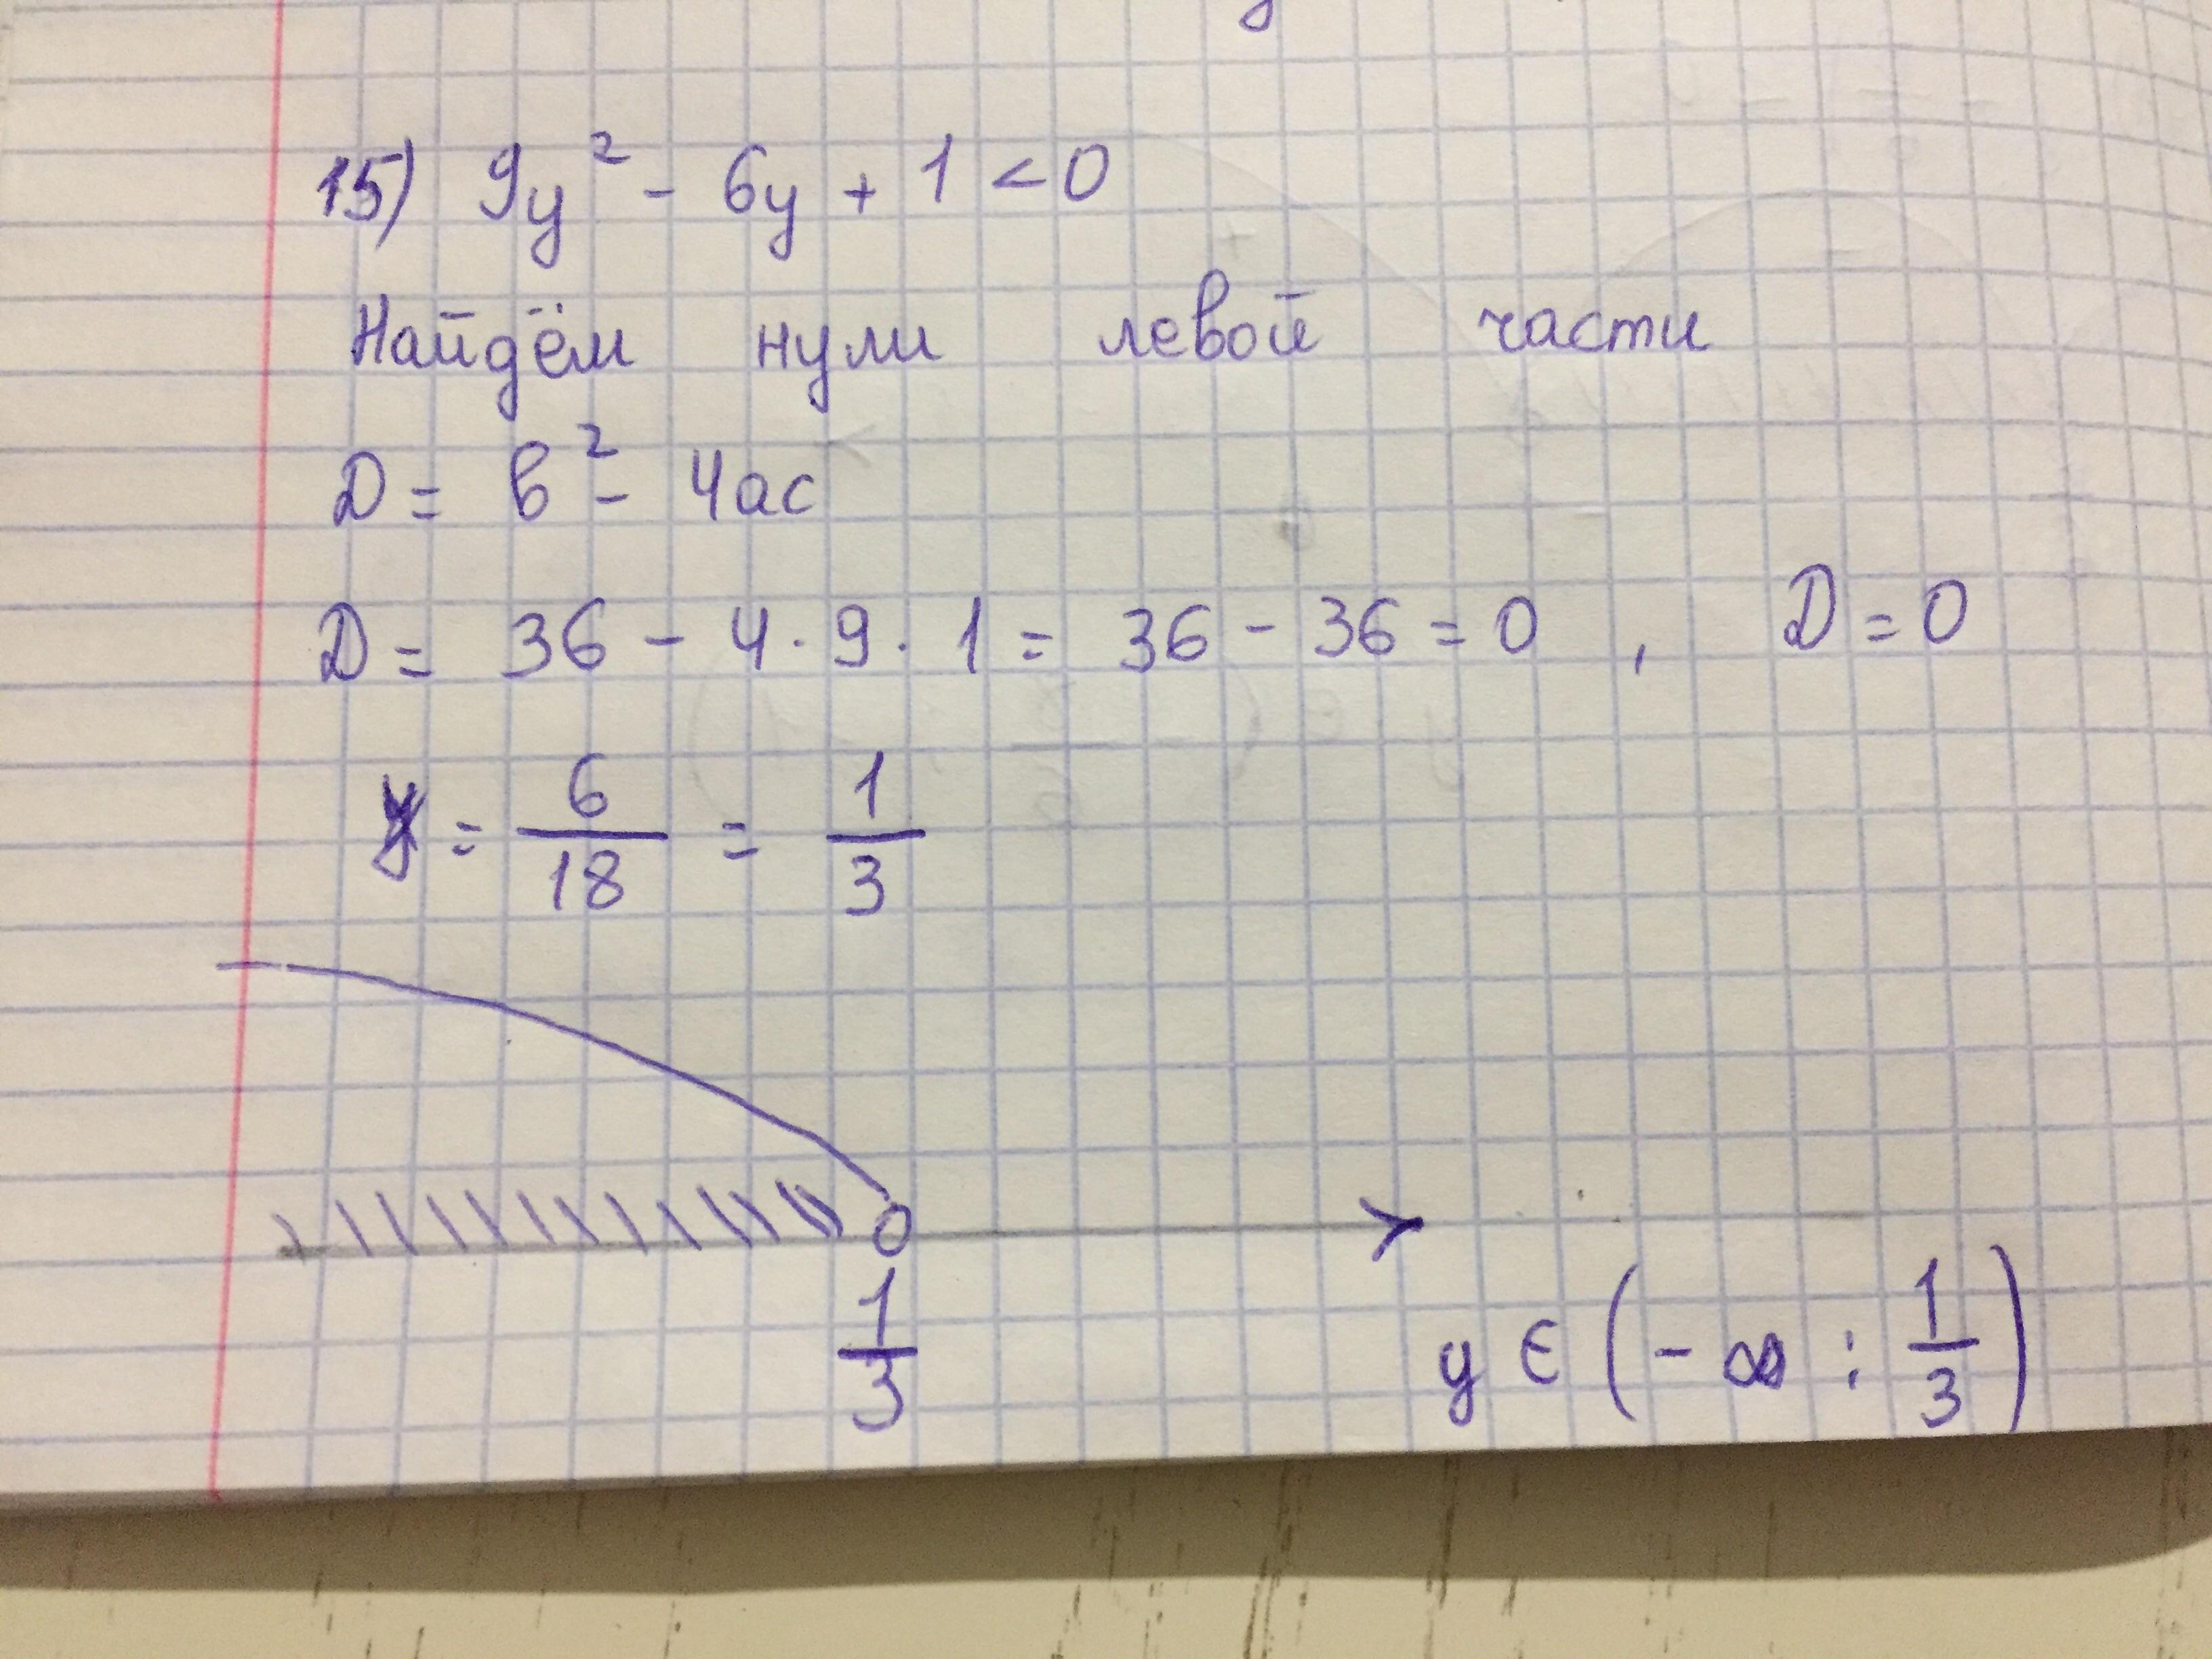 15) 9y² - 6y + 1 < 0
Найдём нули левой части
D = в² - 4ас
D = 36 - 4 · 9 · 1 = 36 - 36 = 0 , D = 0
y = 6/18 = 1/3
1/3
y ∈ (-∞ ; 1/3)